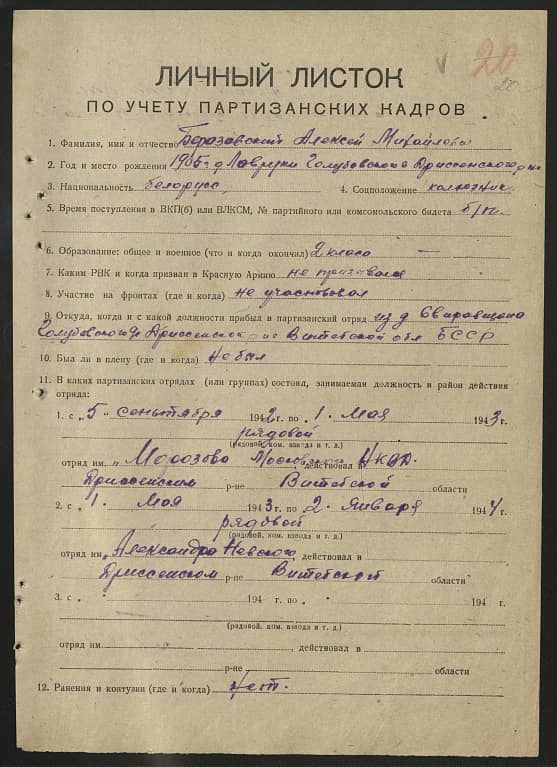 20
20
ЛИЧНЫЙ ЛИСТОК
ПО УЧЕТУ ПАРТИЗАНСКИХ КАДРОВ
1. Фамилия, имя и отчество Берозовский Алексей Михайлов
2. Год и место рождения 1905 г. д Лаврики Голубовского Дриссенского р-н
3. Национальность белорусс 4. Соцположение колхозник
5. Время поступления в ВКП(б) или ВЛКСМ, № партийного или комсомольского билета б/п.
6. Образование: общее и военное (что и когда окончил) 2 класа —
7. Каким РВК и когда призван в Красную Армию не призвался
8. Участие на фронтах (где и когда) не участвовал
9. Откуда, когда и с какой должности прибыл в партизанский отряд из д
Дриссенско Витебской обл БССР
10. Был ли в плену (где и когда) не был
11. В каких партизанских отрядах (или группах) состоял, занимаемая должность и район действия
отряда:
1. с „ 5 " сеньтября 1942 г. по „ 1. Мая 1943 г.
рядовой
(рядовой, ком. взвода и т. д.)
отряд им „ Морозово Московской действовал в НКВД.
Дриссенским р-не Витебской области
2. с „ 1. Мая 1943 г. по „ 2. Января 1944 г.
рядовой
(рядовой, ком. взвода и т. д.)
отряд им „ Александра Невского действовал в
Дриссенском р-не Витебской области
3. с „ 194 г. по „ 194 г.
(рядовой, ком. взвода и т. д.)
отряд им. , действовал в
р-не области
12. Ранения и контузии (где и когда) Нет.